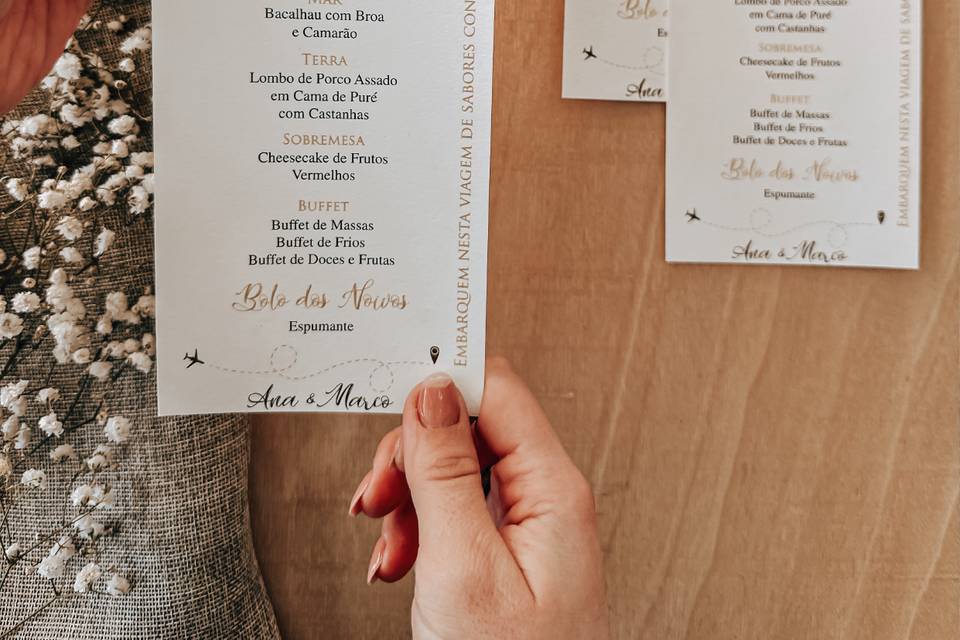 MAR
Bacalhau com Broa
e Camarão
TERRA
Lombo de Porco Assado
em Cama de Puré
com Castanhas
SOBREMESA
Cheesecake de Frutos
Vermelhos
BUFFET
Buffet de Massas
Buffet de Frios
Buffet de Doces e Frutas
Bolo dos Noivos
Espumante
Ana & Marco
EMBARQUEM NESTA VIAGEM DE SABORES CON
Bolo
Es
Ana
Lombo de Porco Assado
em Cama de Puré
com Castanhas
SOBREMESA
Cheesecake de Frutos
Vermelhos
BUFFET
Buffet de Massas
Buffet de Frios
Buffet de Doces e Frutas
Bolo dos Noivos
Espumante
Ana & Marco
EMBARQUEM NESTA VIAGEM DE SABOR